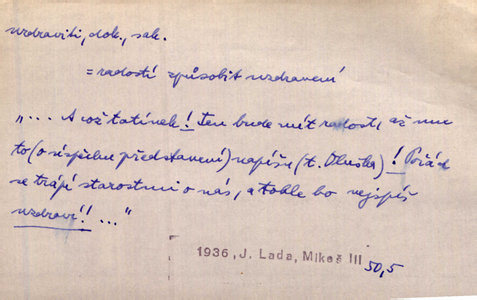 uzdraviti, dok., sak.
= radostí způsobit uzdravení
„... A což tatínek! Ten bude mít radost, až mu
to (o úspěchu představení) napíše (t. Oluška)! Pořád
se trápí starostmi o nás, a tohle ho nejspíš
uzdraví!! ..."
1936, J. Lada, Mikeš III
50,5